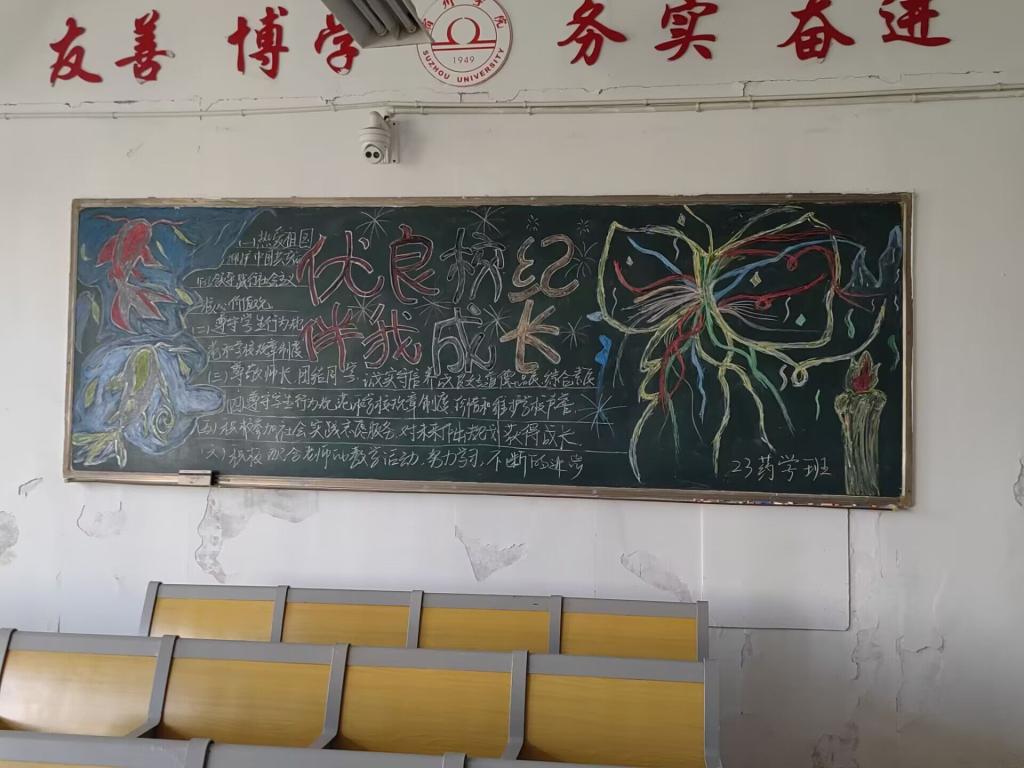 友善 博学 务实 奋进
宿州学院
1949
SUZHOU UNIVERSITY
优良校纪
伴我成长
(一)热爱祖国
拥护中国共产
核心价值观
(二)遵守学生行为规
范和学校规章制度
(三)尊敬师长,团结同学,诚实守信养成良好道德品质,综合素质
(四)遵守学生行为规范和学校规章制度
(五)积极参加社会实践志愿服务,对未来作出规划获得成长.
(六)积极配合老师的教育活动,努力学习,不断的进步
23药学班